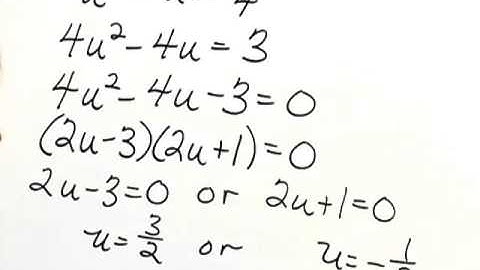 4u² - 4u = 3
4u² - 4u - 3 = 0
(2u-3)(2u+1) = 0
2u-3=0 or 2u+1=0
u = 3/2 or u = -1/